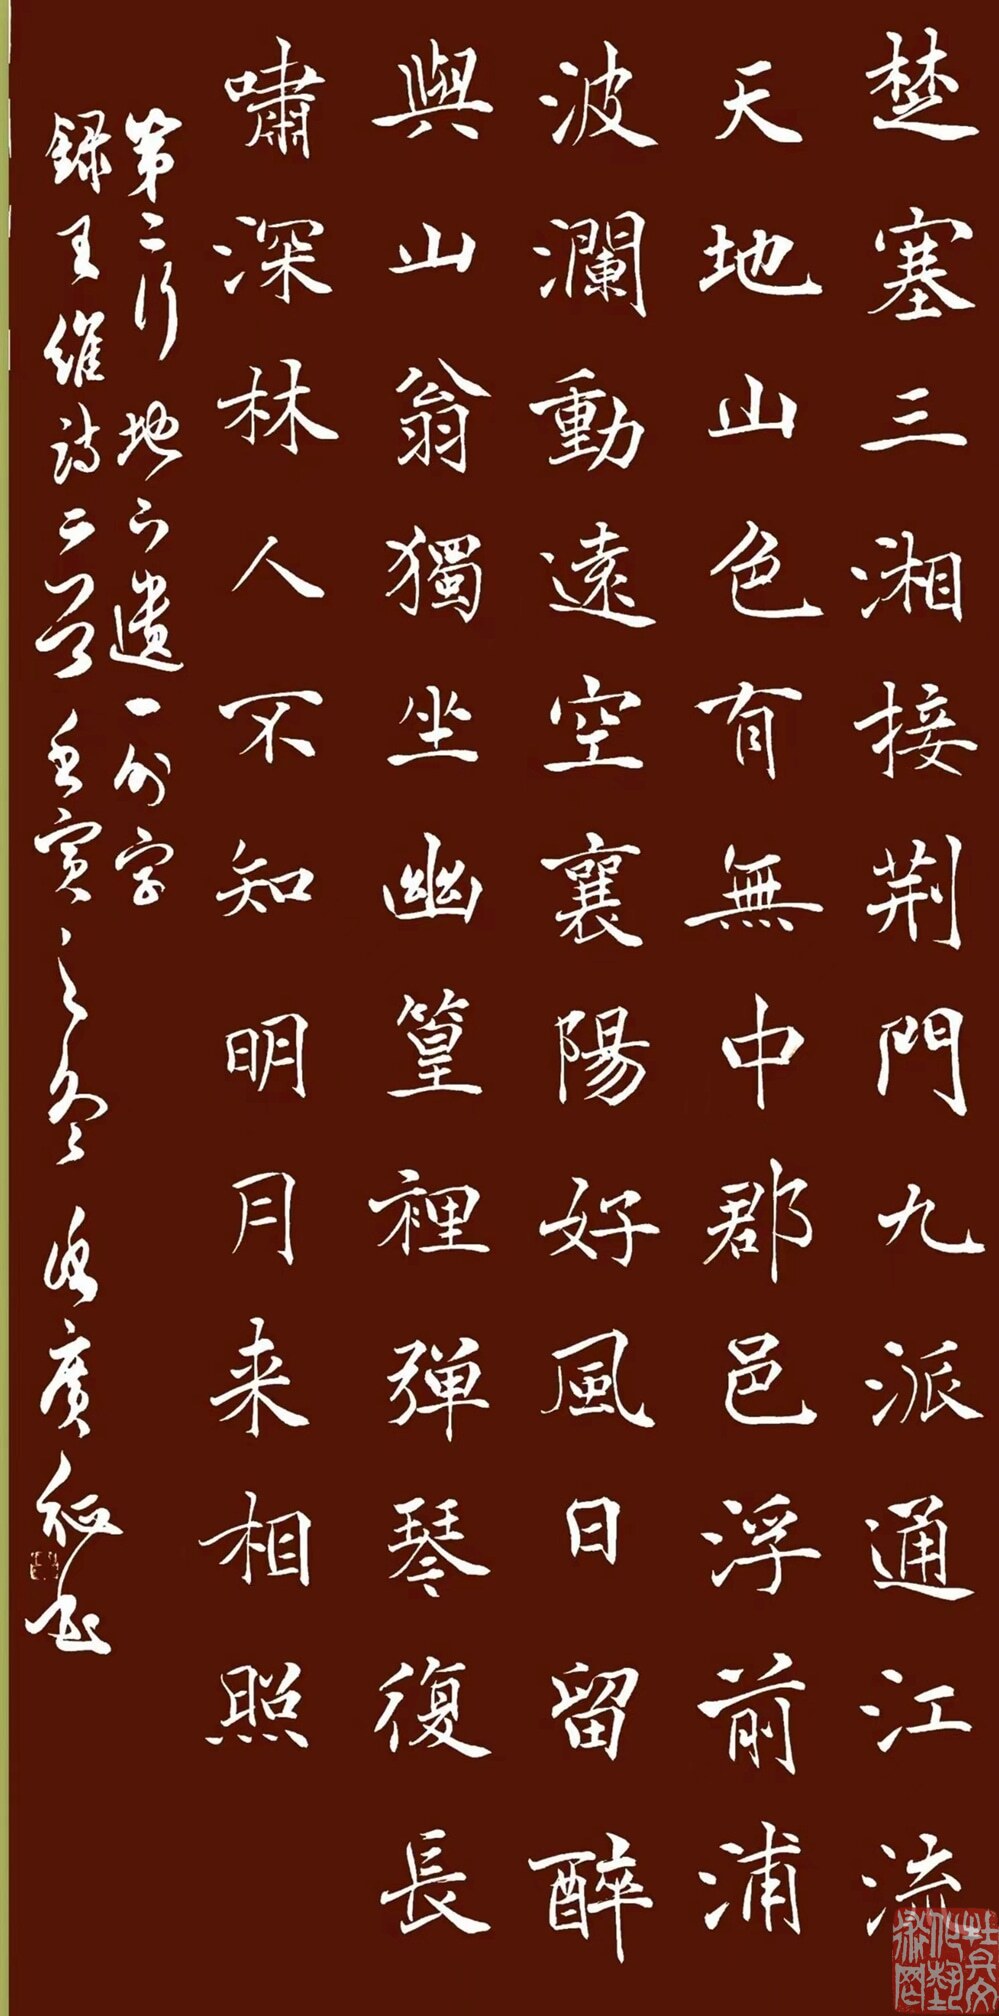 楚塞三湘接荆門九派通江流
天地山色有無中郡邑浮前浦
波瀾動遠空襄陽好風日留醉
與山翁獨坐幽篁裡弹琴復長
嘯深林人不知明月来相照
第二行地下遺一外字
録王維詩二首壬寅之冬 廣征书